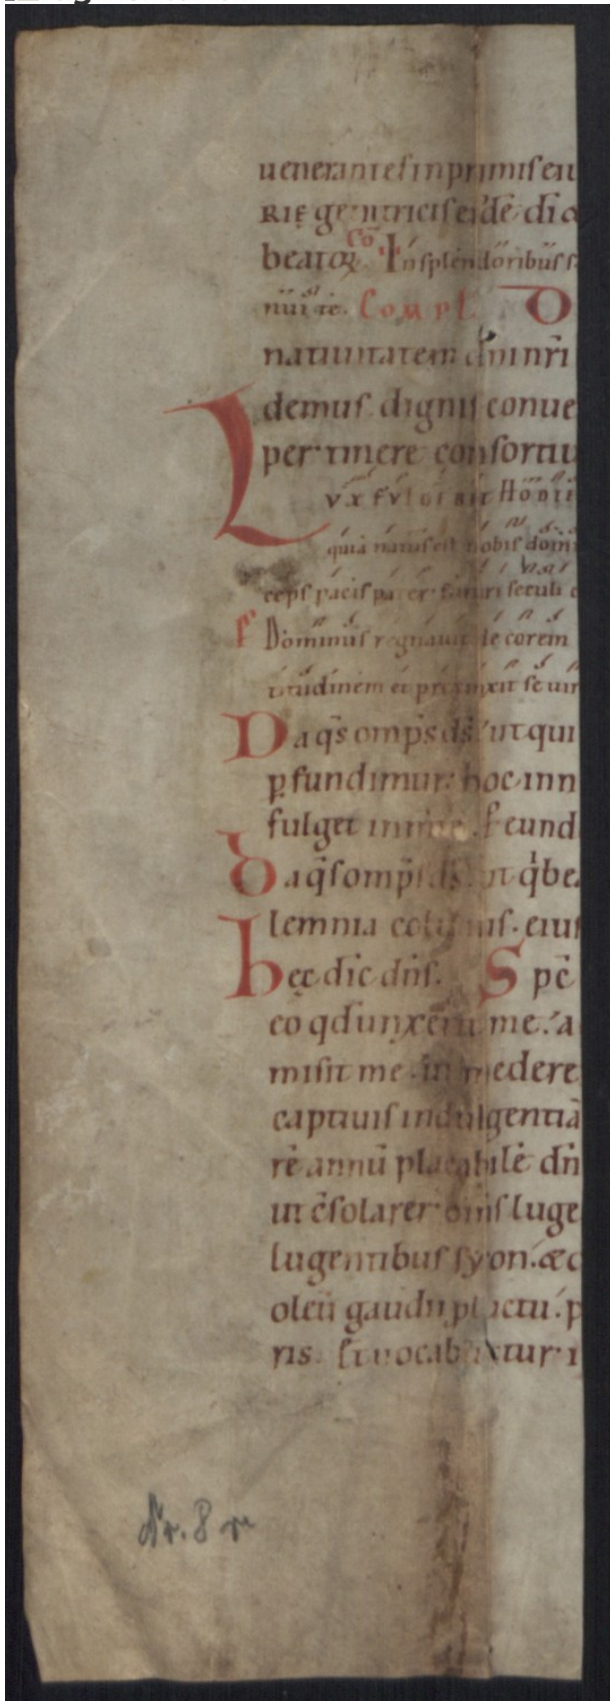 uenerantes inprimis eiu
RIĘ genitricis eide di
beatoꝝ. Cō In splendoribus s
nui te. Compl. D
natiuitatem dni nri
demus dignis conue
pertinere consortiu
Lux fulgebit Hodie
quia natus est nobis domi
ceps pacis pater futuri seculi c
Ps Dominus regnauit decorem
titudinem et precinxit se uir
Da qs omps ds. ut qui
ꝑfundimur. hoc inn
fulget in mente. Secund
Da qs omps ds. ut q be
lemnia colimus. eius
hęc dic dns. Spc
eo qd unxerit me. a
misit me. in medere
captiuis indulgentiā
rē annū placabilē dn
ut csolarer oms luge
lugentibus syon. & c
oleū gaudii p luctu. p
ris. Et uocabuntur i
Nr. 8 r